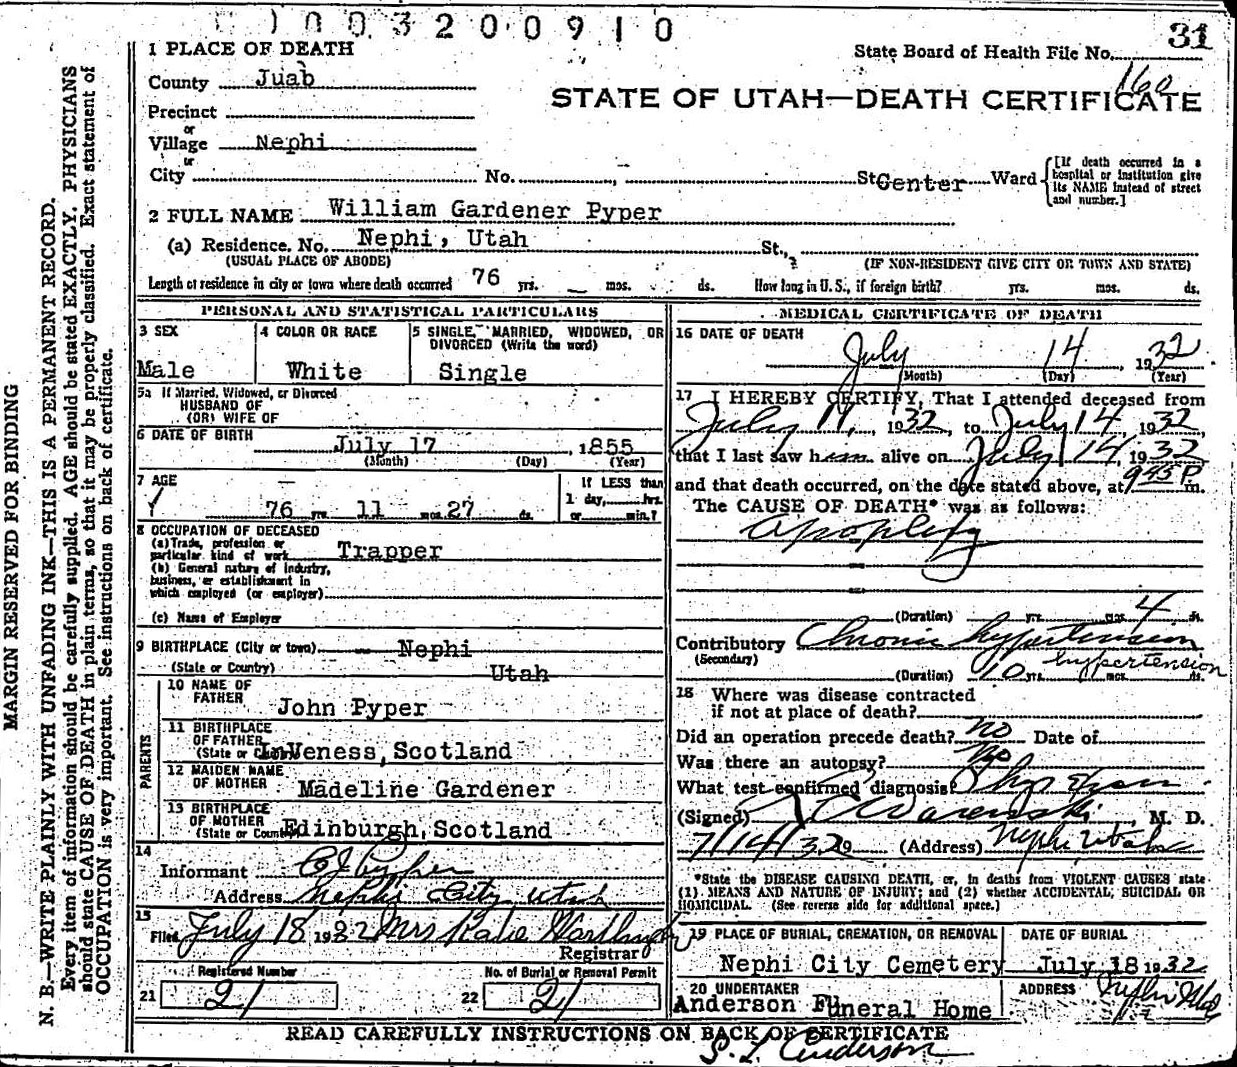 0 0 3 2 0 0 9 1 0
31
1 PLACE OF DEATH
State Board of Health File No.
160
County Juab
STATE OF UTAH—DEATH CERTIFICATE
Precinct
or
Village Nephi
or
City No. St Center Ward
[If death occurred in a hospital or institution give its NAME instead of street and number.]
2 FULL NAME William Gardener Pyper
(a) Residence. No. Nephi, Utah St.,
(USUAL PLACE OF ABODE) (IF NON-RESIDENT GIVE CITY OR TOWN AND STATE)
Length of residence in city or town where death occurred 76 yrs. — mos. ds. How long in U. S., if foreign birth? yrs. mos. ds.
PERSONAL AND STATISTICAL PARTICULARS
3 SEX
Male
4 COLOR OR RACE
White
5 SINGLE, MARRIED, WIDOWED, OR DIVORCED (Write the word)
Single
5a If Married, Widowed, or Divorced
HUSBAND OF
(OR) WIFE OF
6 DATE OF BIRTH July 17, 1855
(Month) (Day) (Year)
7 AGE
76 yrs. 11 mos. 27 ds.
If LESS than
1 day, hrs.
or min.?
8 OCCUPATION OF DECEASED
(a) Trade, profession or
particular kind of work Trapper
(b) General nature of industry,
business, or establishment in
which employed (or employer)
(c) Name of Employer
9 BIRTHPLACE (City or town) Nephi
(State or Country) Utah
PARENTS
10 NAME OF
FATHER John Pyper
11 BIRTHPLACE
OF FATHER
(State or Country) InVeness, Scotland
12 MAIDEN NAME
OF MOTHER Madeline Gardener
13 BIRTHPLACE
OF MOTHER
(State or Country) Edinburgh, Scotland
14
Informant C J Pyper
Address Nephi City Utah
15
Filed July 18 1932 Mrs Katie
Registrar
Registered Number
21 21
No. of Burial or Removal Permit
22 21
MEDICAL CERTIFICATE OF DEATH
16 DATE OF DEATH
July 14, 1932
(Month) (Day) (Year)
17 I HEREBY CERTIFY, That I attended deceased from
July 11, 1932, to July 14, 1932,
that I last saw him alive on July 14, 1932
and that death occurred, on the date stated above, at 9 45 P. m.
The CAUSE OF DEATH* was as follows:
Apoplexy
(Duration) yrs. mos. 4 ds.
Contributory Chronic hypertension
(Secondary) hypertension
(Duration) 10 yrs. mos. ds.
18 Where was disease contracted
if not at place of death?
Did an operation precede death? no Date of
Was there an autopsy? No
What test confirmed diagnosis?
(Signed) M. D.
7/14/32 19 (Address) Nephi Utah
*State the DISEASE CAUSING DEATH, or, in deaths from VIOLENT CAUSES state
(1) MEANS AND NATURE OF INJURY; and (2) whether ACCIDENTAL, SUICIDAL OR
HOMICIDAL. (See reverse side for additional space.)
19 PLACE OF BURIAL, CREMATION, OR REMOVAL DATE OF BURIAL
Nephi City Cemetery July 18 1932
20 UNDERTAKER ADDRESS
Anderson Funeral Home Nephi Utah
READ CAREFULLY INSTRUCTIONS ON BACK OF CERTIFICATE
S. L. Anderson
MARGIN RESERVED FOR BINDING
N. B.—WRITE PLAINLY WITH UNFADING INK—THIS IS A PERMANENT RECORD.
Every item of information should be carefully supplied. AGE should be stated EXACTLY. PHYSICIANS
should state CAUSE OF DEATH in plain terms, so that it may be properly classified. Exact statement of
OCCUPATION is very important. See instructions on back of certificate.